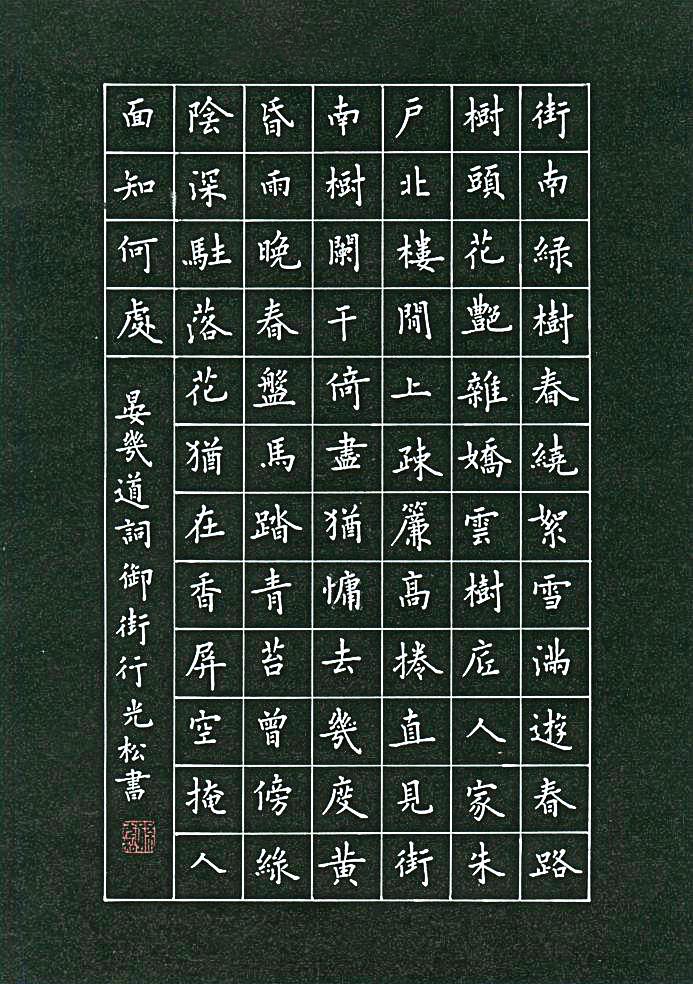 街南緑樹春繞絮雪滿遊春路
樹頭花艷雜嬌雲樹底人家朱
戶北樓閒上疎簾高捲直見街
南樹闌干倚盡猶慵去幾度黃
昏雨晚春盤馬踏青苔曾傍綠
陰深駐落花猶在香屏空掩人
面知何處
晏幾道詞御街行光松書